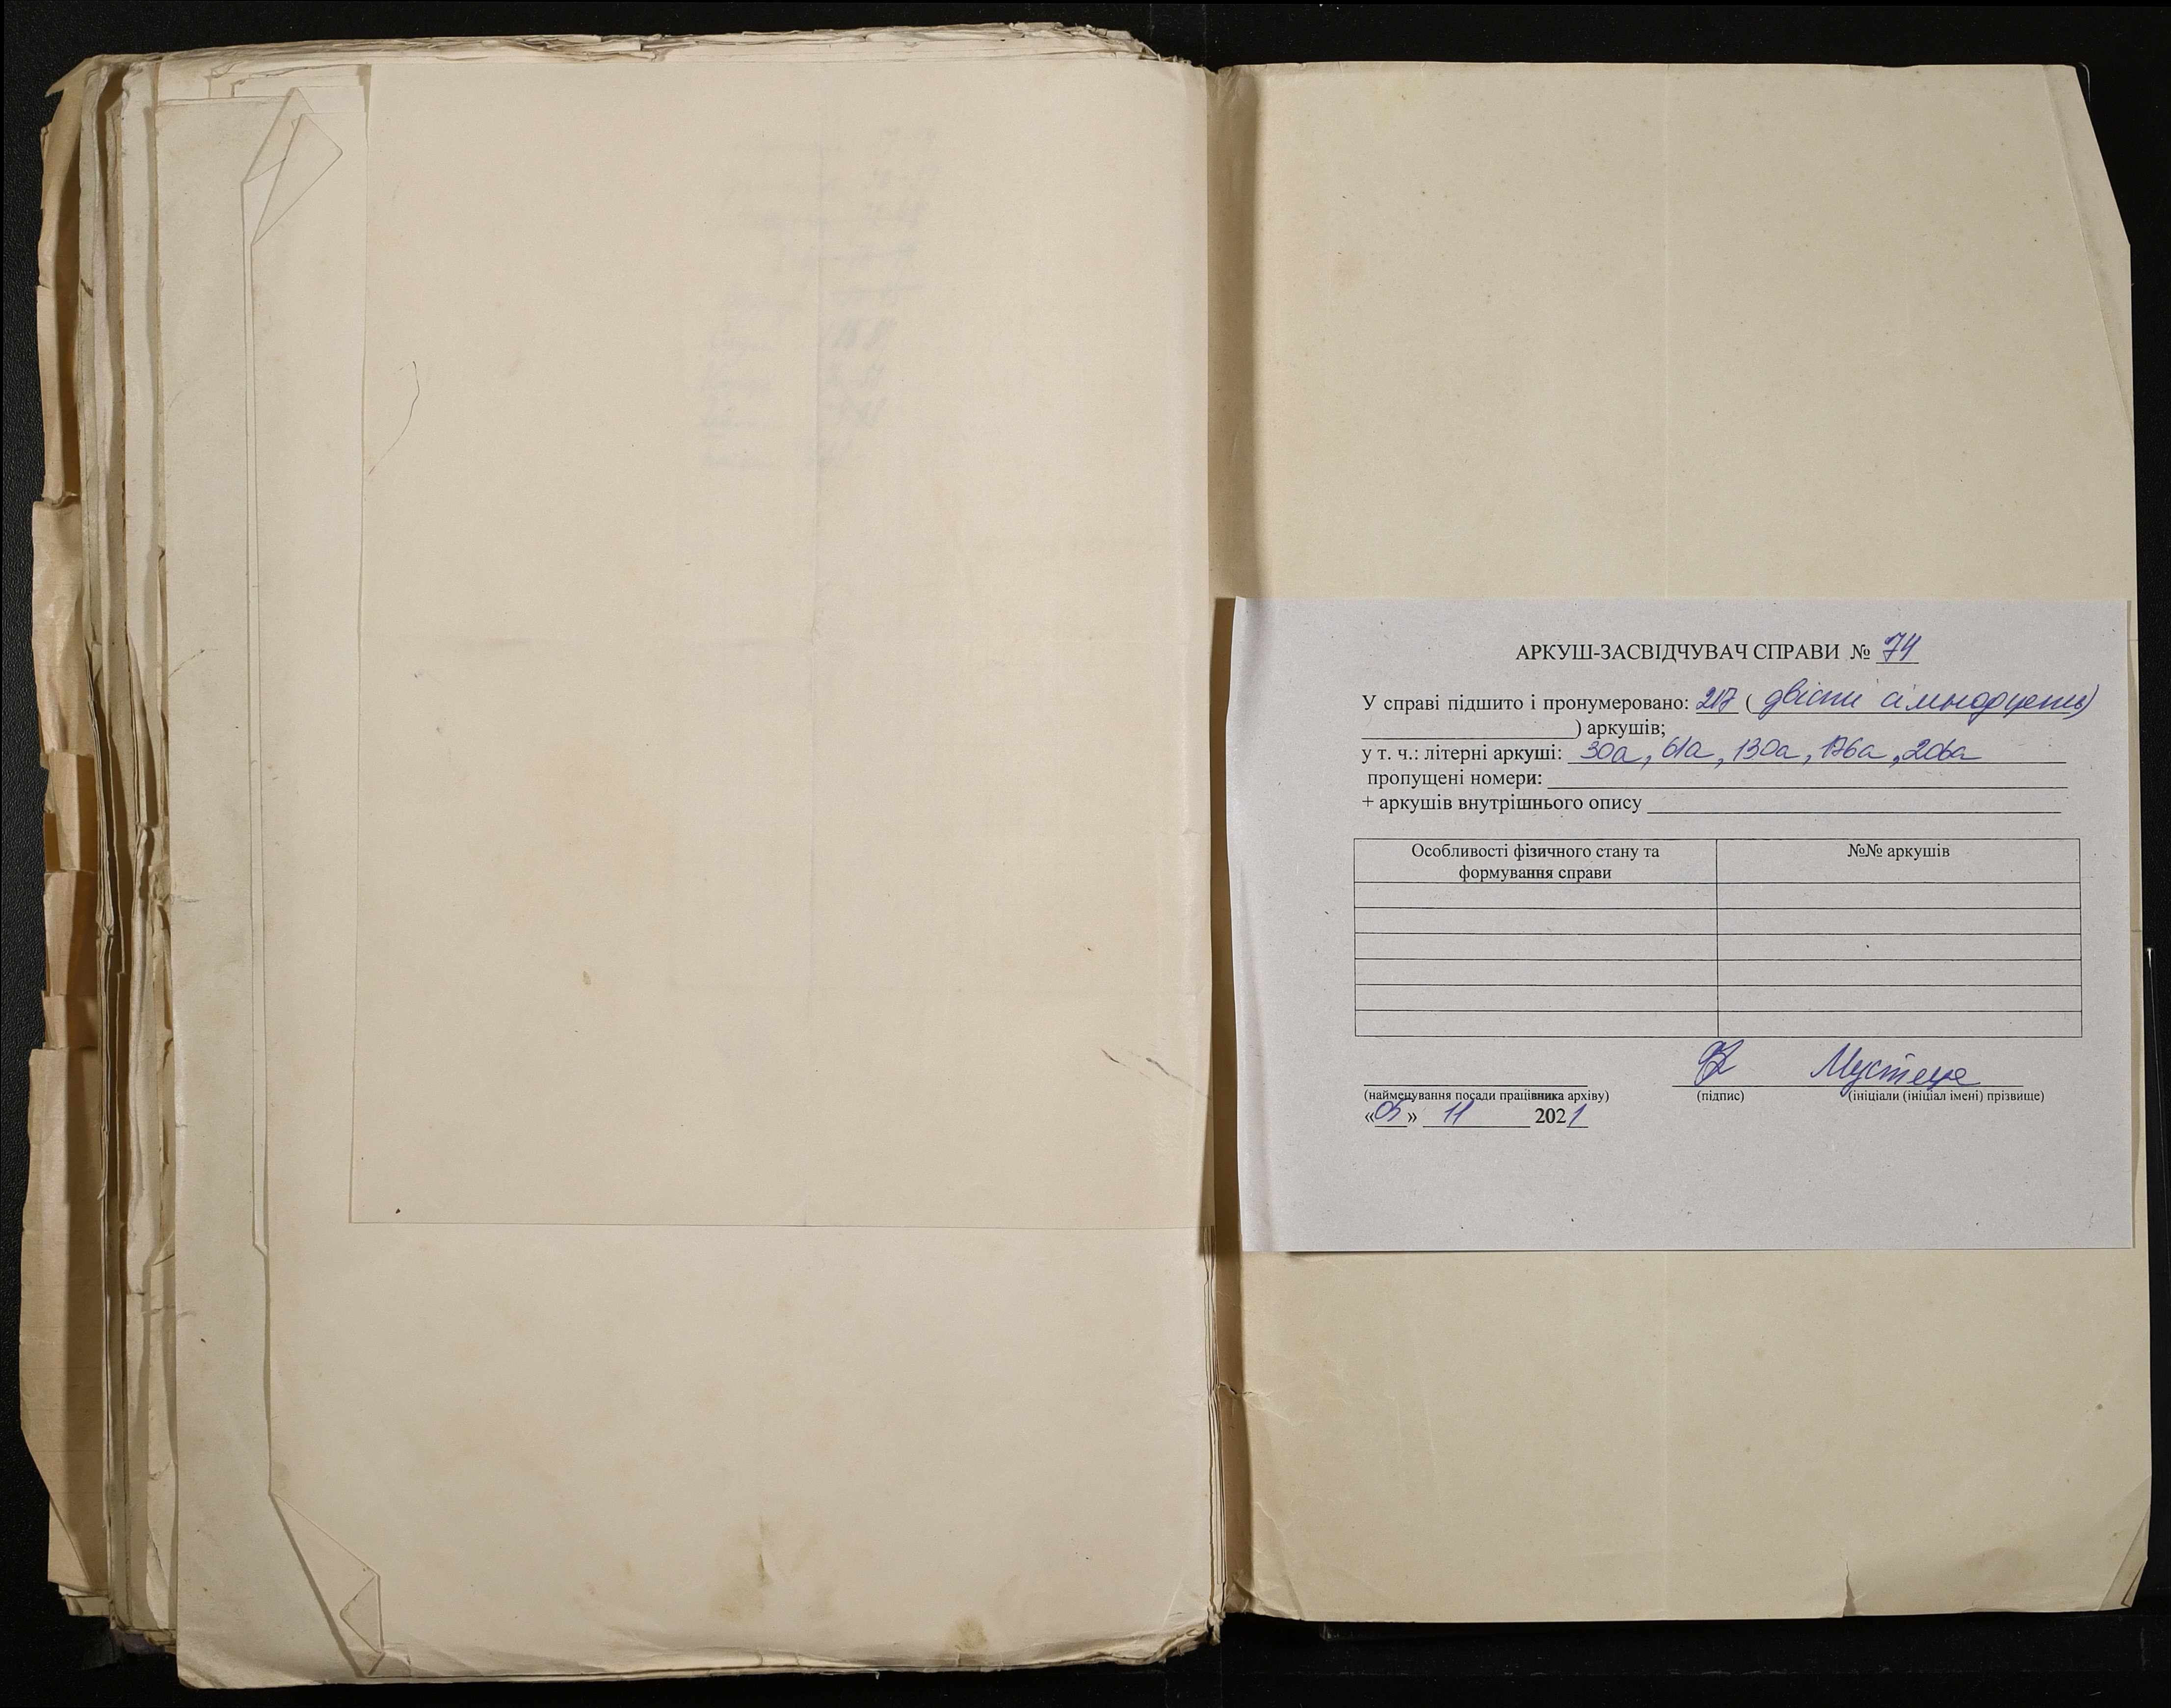 АРКУШ-ЗАСВІДЧУВАЧ СПРАВИ № 74
У справі підшито і пронумеровано: 217 ( двісті сімнадцять)
) аркушів;
у т. ч.: літерні аркуші: 30а, 61а, 130а, 176а, 206а
пропущені номери:
+ аркушів внутрішнього опису
Особливості фізичного стану та формування справи
№№ аркушів
Мустеце
(найменування посади працівника архіву) (підпис) (ініціали (ініціал імені) прізвище)
«05» 11 2021